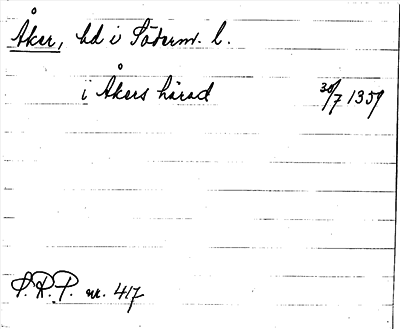 Åker, hd i Söderm. l.
i Åkers härad 30/7 1357
S.R.P. nr. 417